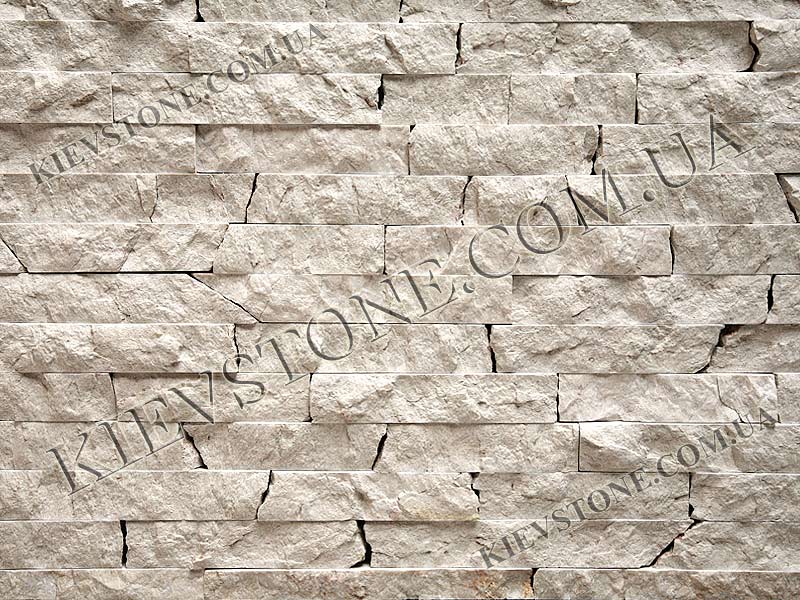 KIEVSTONE.COM.UA
KIEVSTONE.COM.UA
KIEVSTONE.COM.UA